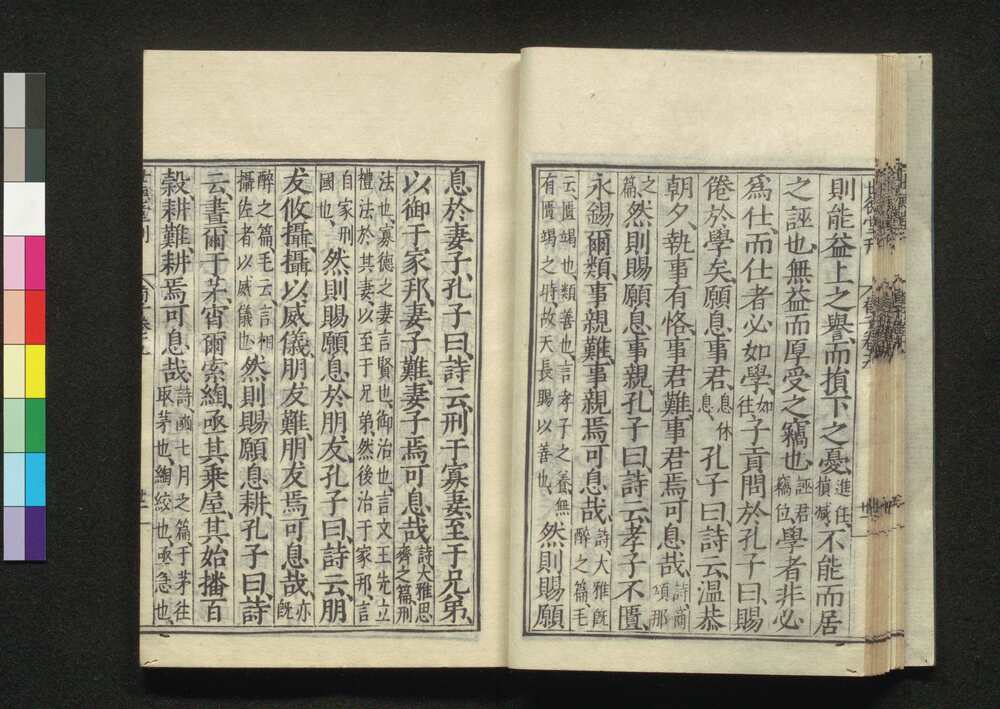 則能益上之譽、而損下之憂、進仕、損減、不能而居
之誣也、無益而厚受之竊也、誣君、竊位、學者非必
爲仕、而仕者必如學、如往、子貢問於孔子曰、賜
倦於學矣、願息事君、息休、孔子曰、詩云、溫恭
朝夕、執事有恪、事君難、事君焉可息哉、詩商頌那
之篇、然則賜願息事親、孔子曰、詩云、孝子不匱、
永錫爾類、事親難、事親焉可息哉、詩大雅既醉之篇、毛
云、匱竭也、類善也、言孝子之養、無有匱竭之時、故天長賜以善也、然則賜願
息於妻子、孔子曰、詩云、刑于寡妻、至于兄弟、
以御于家邦、妻子難、妻子焉可息哉、詩大雅思齊之篇、刑
法也、寡德之妻、言賢也、御治也、言文王先立禮法於其妻、以至于兄弟、然後治于家邦、言
自家刑國也、然則賜願息於朋友、孔子曰、詩云、朋
友攸攝、攝以威儀、朋友難、朋友焉可息哉、亦既
醉之篇、毛云、言相攝佐者以威儀也、然則賜願息耕、孔子曰、詩
云、晝爾于茅、宵爾索綯、亟其乘屋、其始播百
穀、耕難、耕焉可息哉、詩豳七月之篇、于茅往取茅也、綯絞也、亟急也、